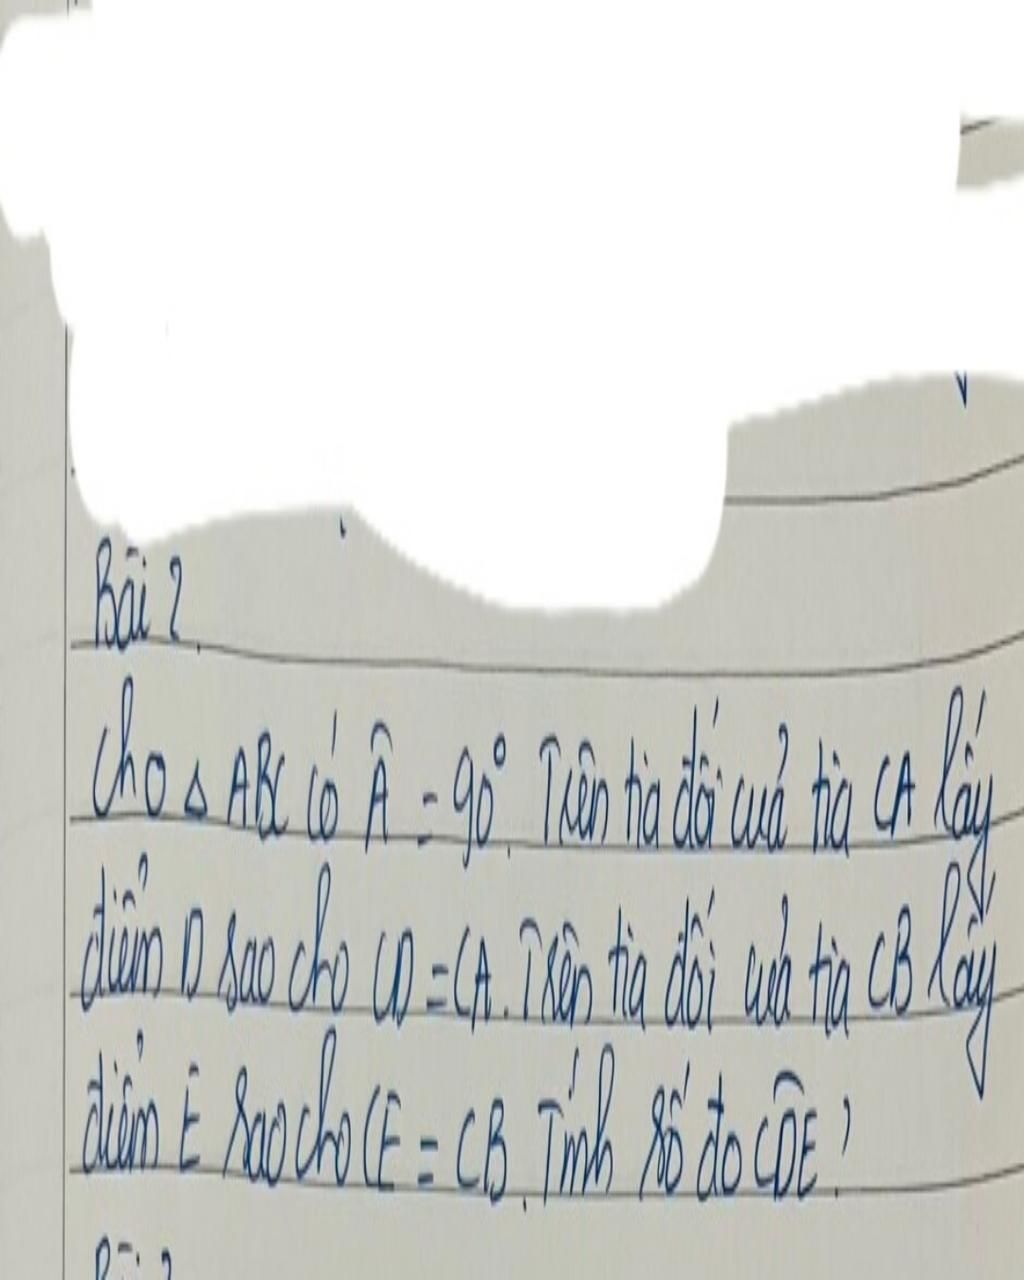 Bài 2
Cho △ ABC có Â = 90°. Trên tia đối của tia CA lấy
điểm D sao cho CD = CA. Trên tia đối của tia CB lấy
điểm E sao cho CE = CB. Tính số đo CDE?